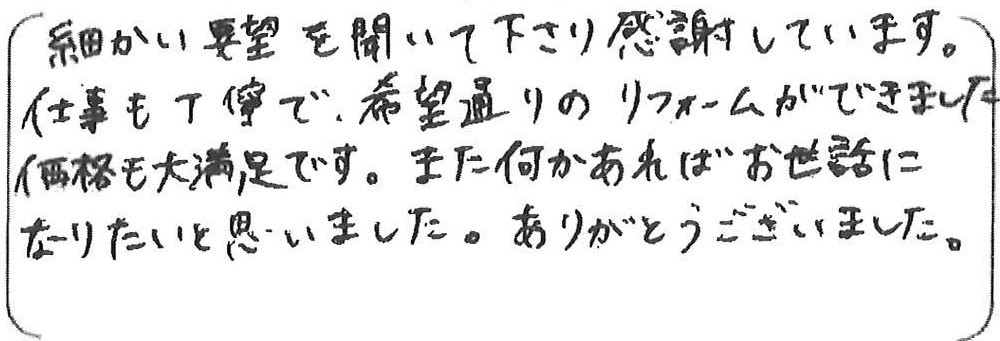 細かい要望を聞いて下さり感謝しています。
仕事も丁寧で、希望通りのリフォームができました
価格も大満足です。また何かあればお世話に
なりたいと思いました。ありがとうございました。